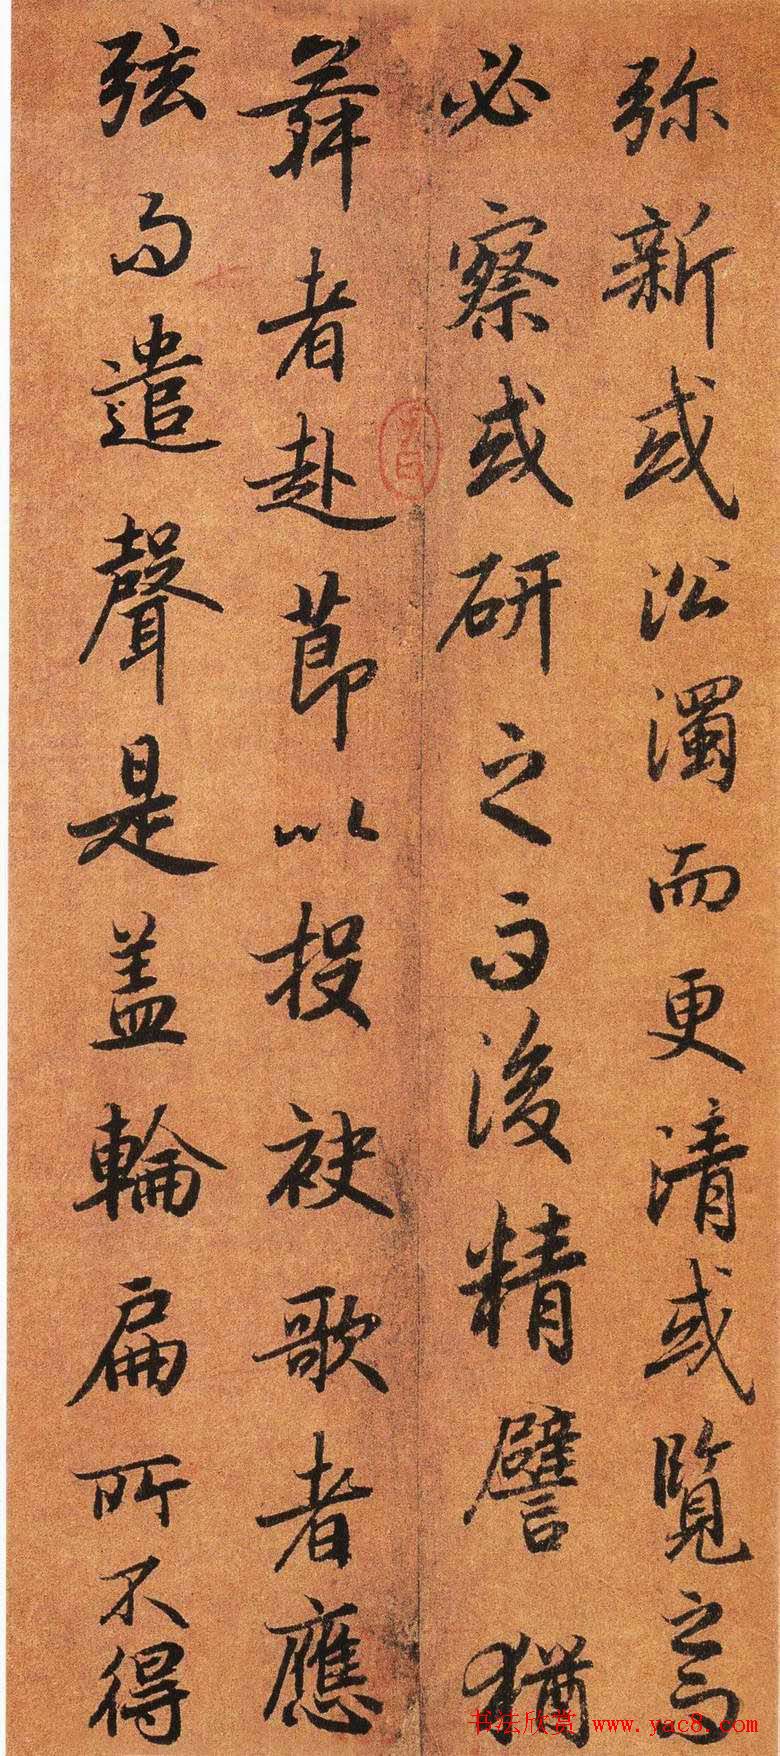 弥新或㳂濁而更清或覽之而
必察或研之而後精譬猶
舞者赴莭以投袂歌者應
弦而遣聲是盖輪扁所不得
书法欣赏 www.yac8.com